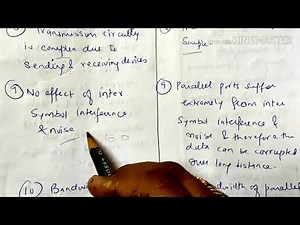 Transmission circuitry
is complex due to
sending & receiving devices
Simple
⑨ No effect of inter
Symbol interference
& noise
⑨ Parallel ports suffer
extremely from inter
Symbol interference &
noise & therefore the
data can be corrupted
over long distance.
⑩ Bandw
width of parallel